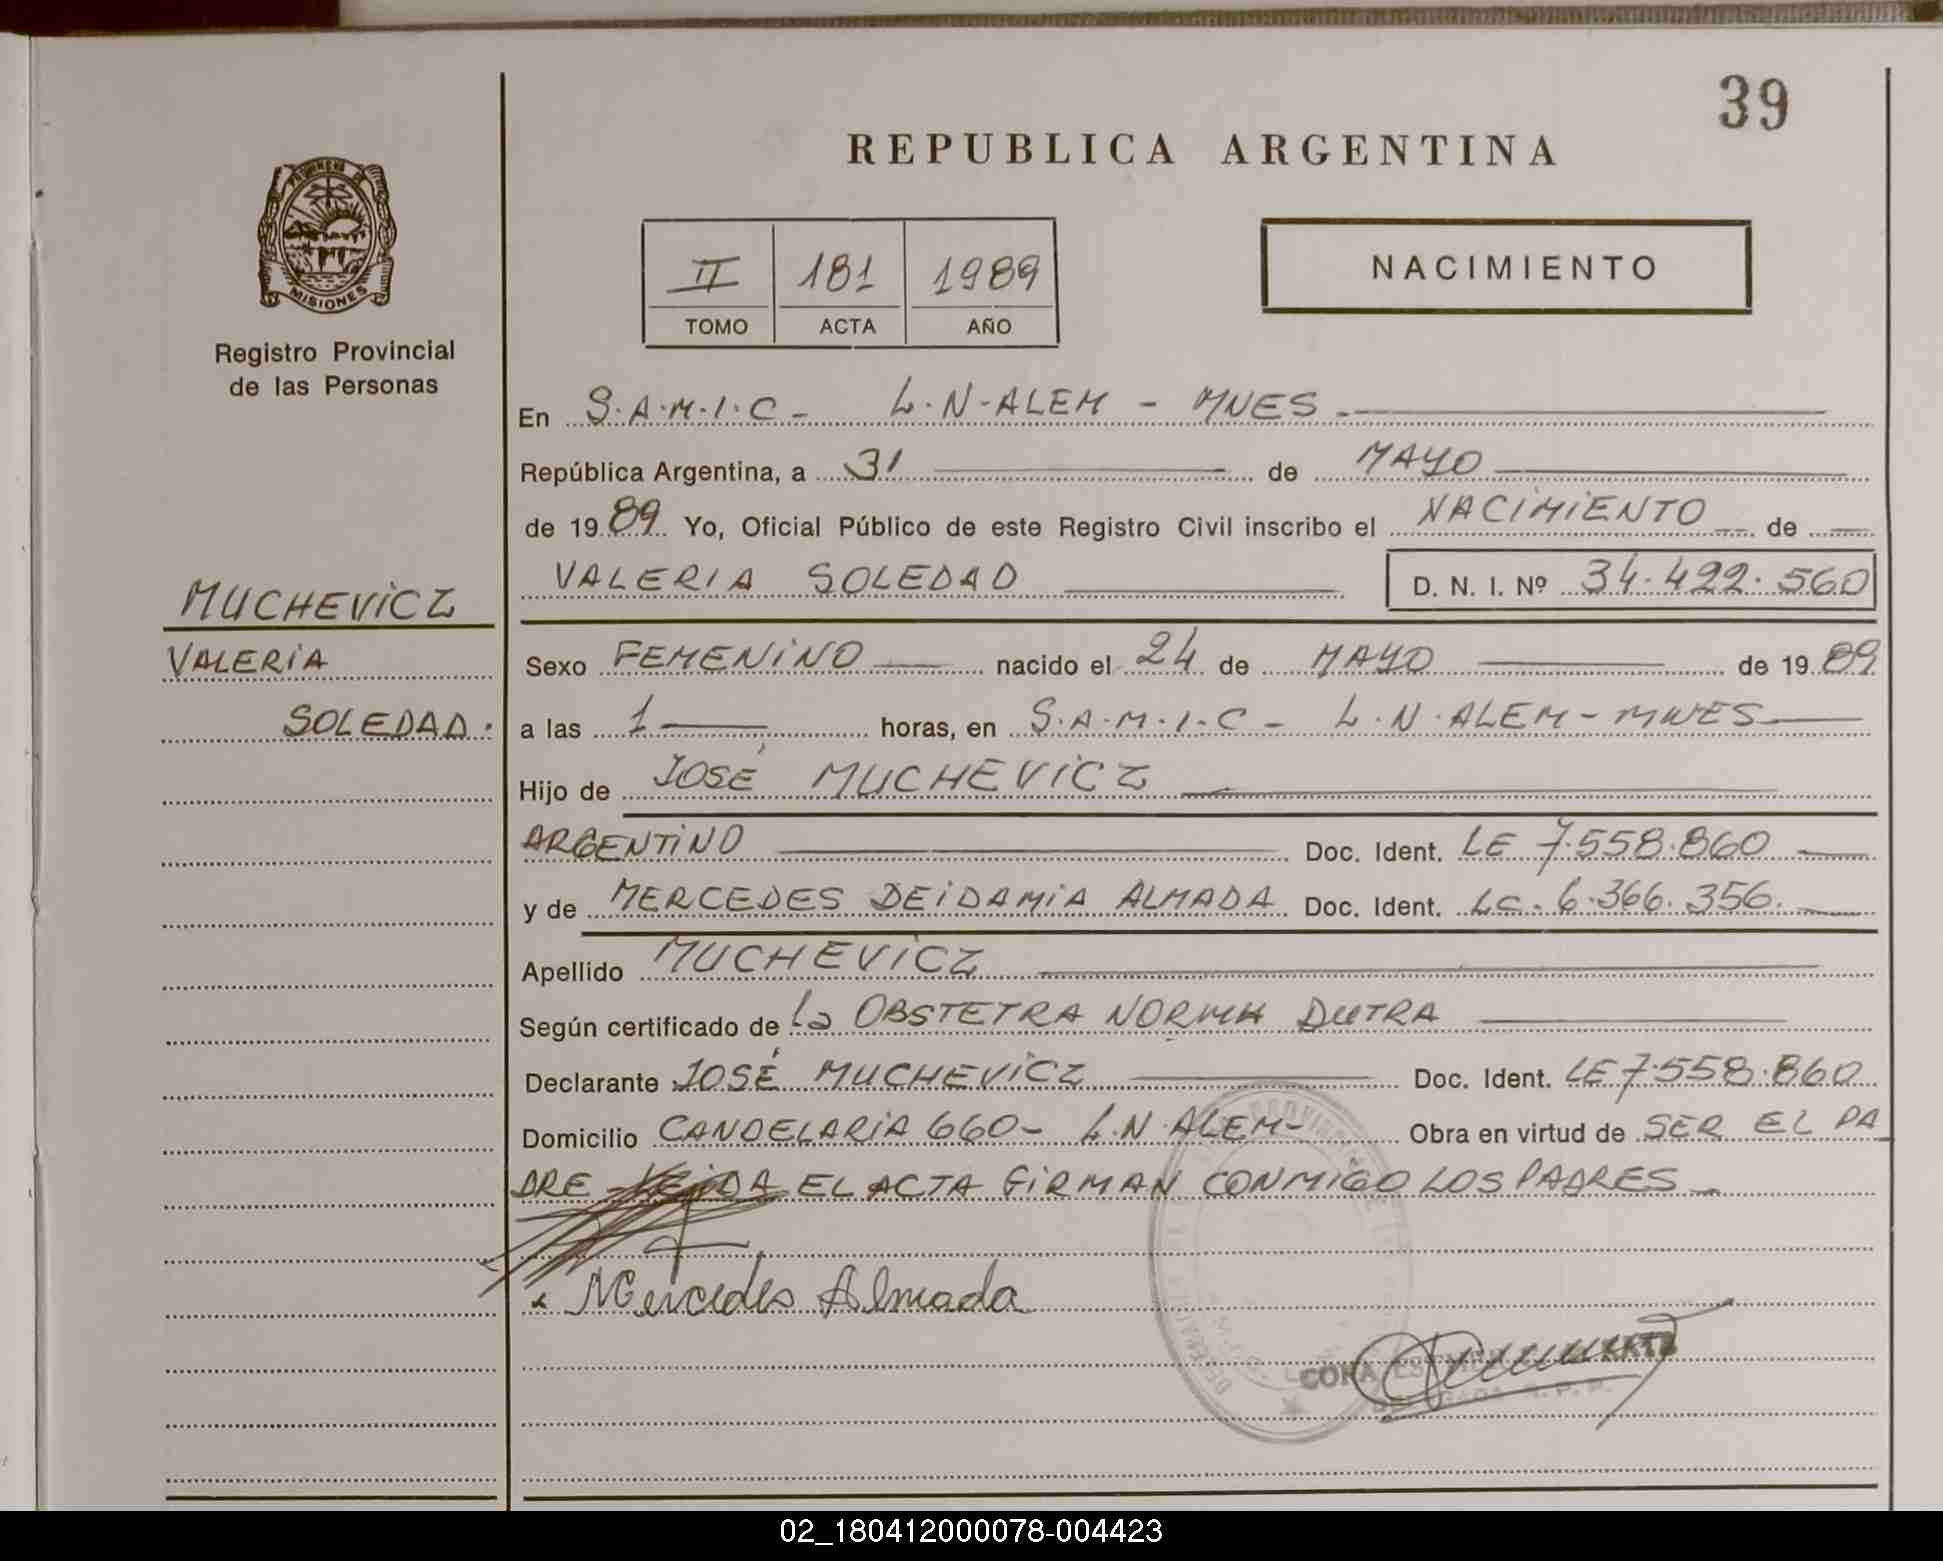 39
REPUBLICA ARGENTINA
PROVINCIA DE
MISIONES
Registro Provincial
de las Personas
II 181 1989
TOMO ACTA AÑO
NACIMIENTO
En S.A.M.I.C- L.N-ALEM - MNES.-
República Argentina, a 31 de MAYO
de 1989. Yo, Oficial Público de este Registro Civil inscribo el NACIMIENTO de
VALERIA SOLEDAD D. N. I. Nº 34.422.560
MUCHEVICZ
VALERIA
SOLEDAD.
Sexo FEMENINO nacido el 24 de MAYO de 1989
a las 1 horas, en S.A.M.I.C- L.N.ALEM-MNES
Hijo de JOSÉ MUCHEVICZ
ARGENTINO Doc. Ident. LE 7.558.860
y de MERCEDES DEIDAMIA ALMADA Doc. Ident. LC. 6.366.356.
Apellido MUCHEVICZ
Según certificado de la OBSTETRA NORMA DUTRA
Declarante JOSÉ MUCHEVICZ Doc. Ident. LE 7.558.860
Domicilio CANDELARIA 660- L.N.ALEM- Obra en virtud de SER EL PA
DRE LEIDA EL ACTA FIRMAN CONMIGO LOS PADRES
x Mercedes Almada
02_180412000078-004423